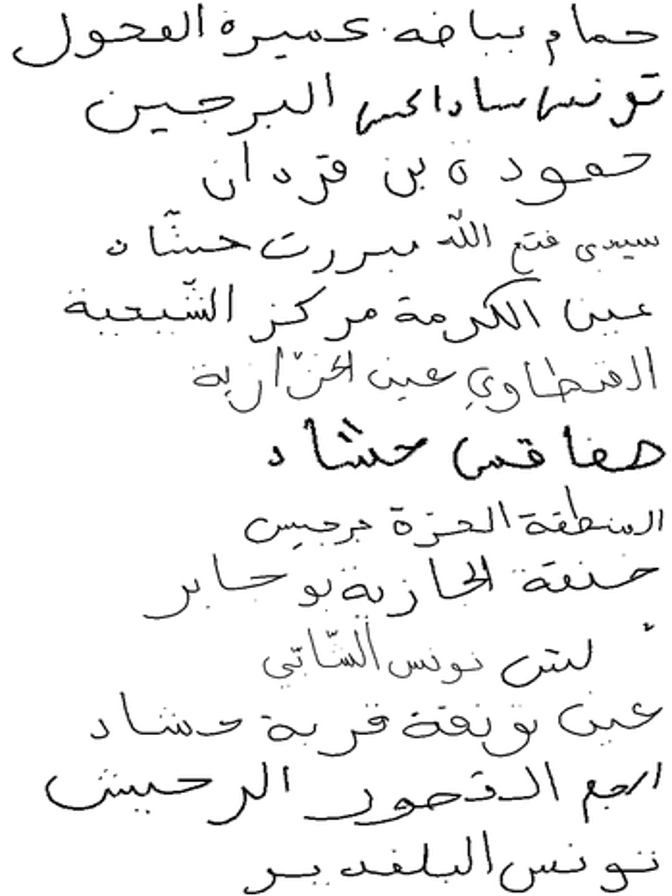 حمام بياضه عميرة الفحول
تونس ساداكس البرجين
حمودة بن قردان
سيدي فتح الله حشّاد
عين الكرمة مركز الشّيحية
القنطاوي عين
صفاقس حشاد
المنطقة الحرة جرجيس
خنقة الجازية بو جابر
تونس الشّابّي
عين قرية حشاد
الجم القصور الرحيش
تونس البلفدير